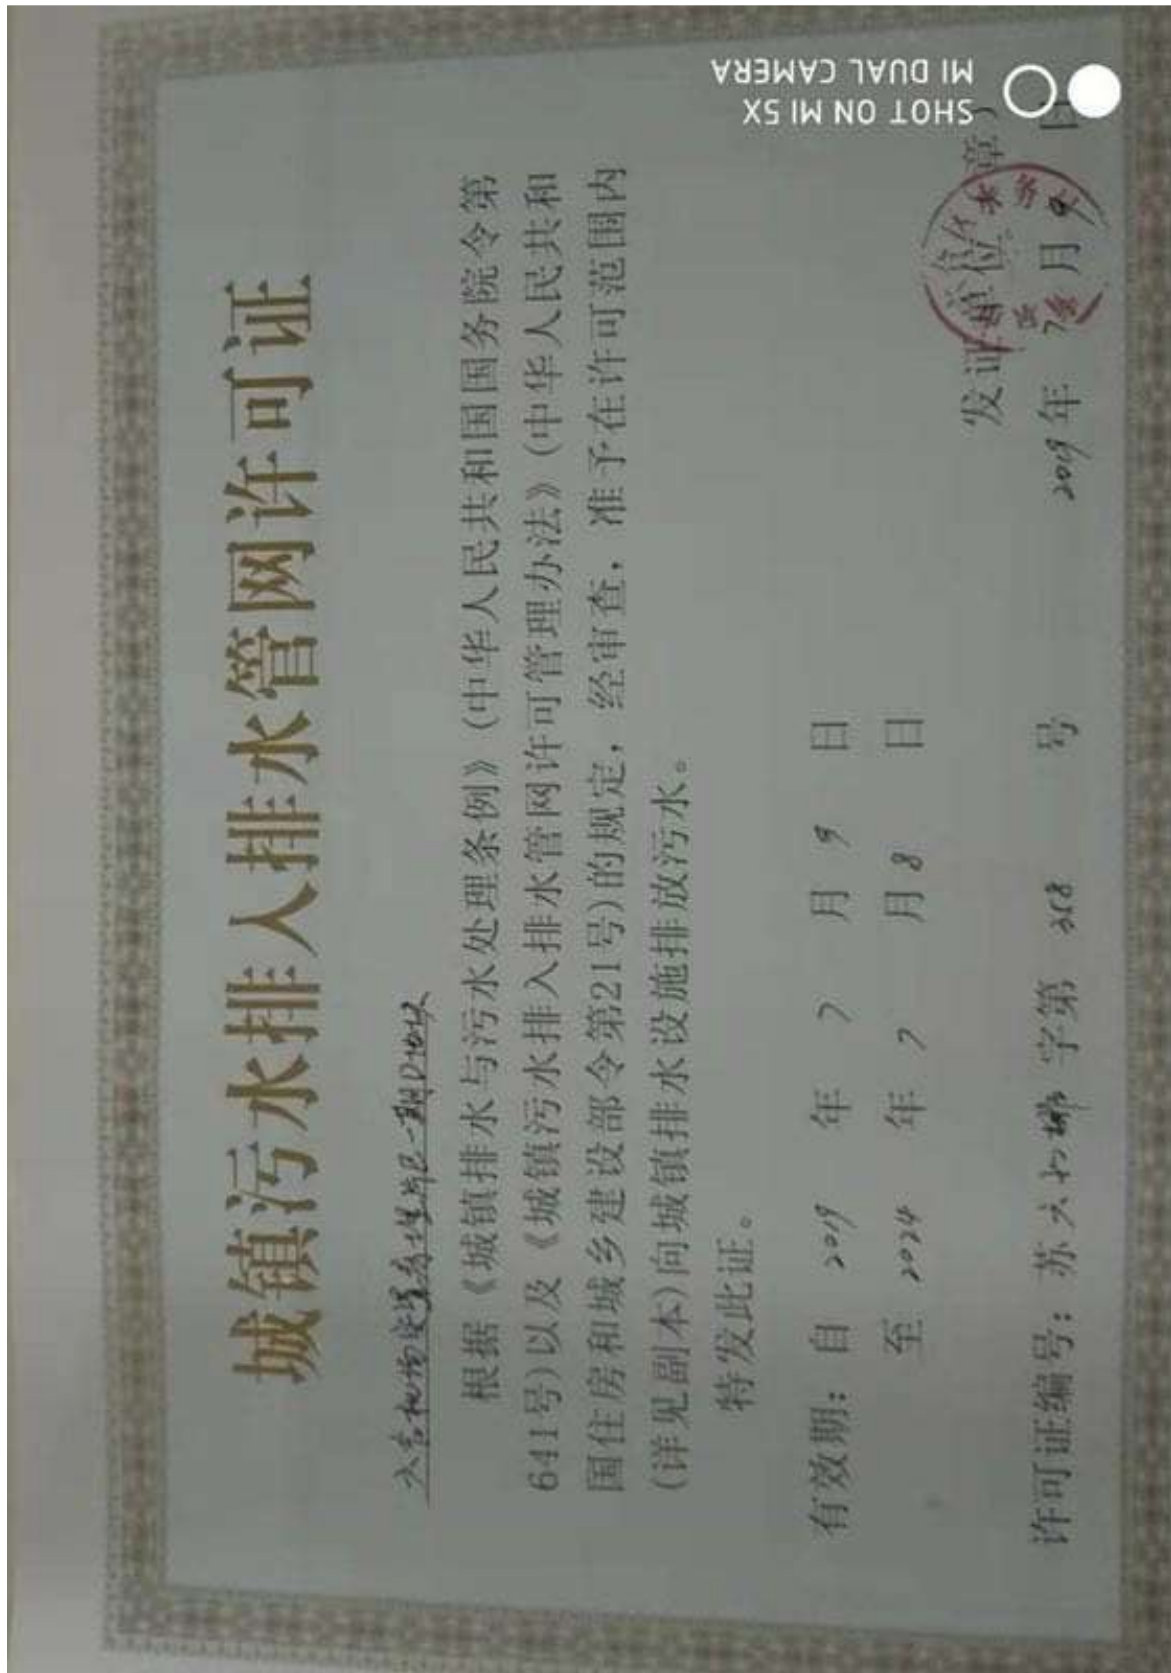 城镇污水排入排水管网许可证
根据《城镇排水与污水处理条例》(中华人民共和国国务院令第
641号)以及《城镇污水排入排水管网许可管理办法》(中华人民共和
国住房和城乡建设部令第21号)的规定,经审查,准予在许可范围内
(详见副本)向城镇排水设施排放污水。
特发此证。
有效期:自 2019 年 7 月 9 日
至 2024 年 7 月 8 日
发证单位 章)
2019 年 7 月 9 日
许可证编号:苏 六 字第 号
SHOT ON MI 5X
MI DUAL CAMERA